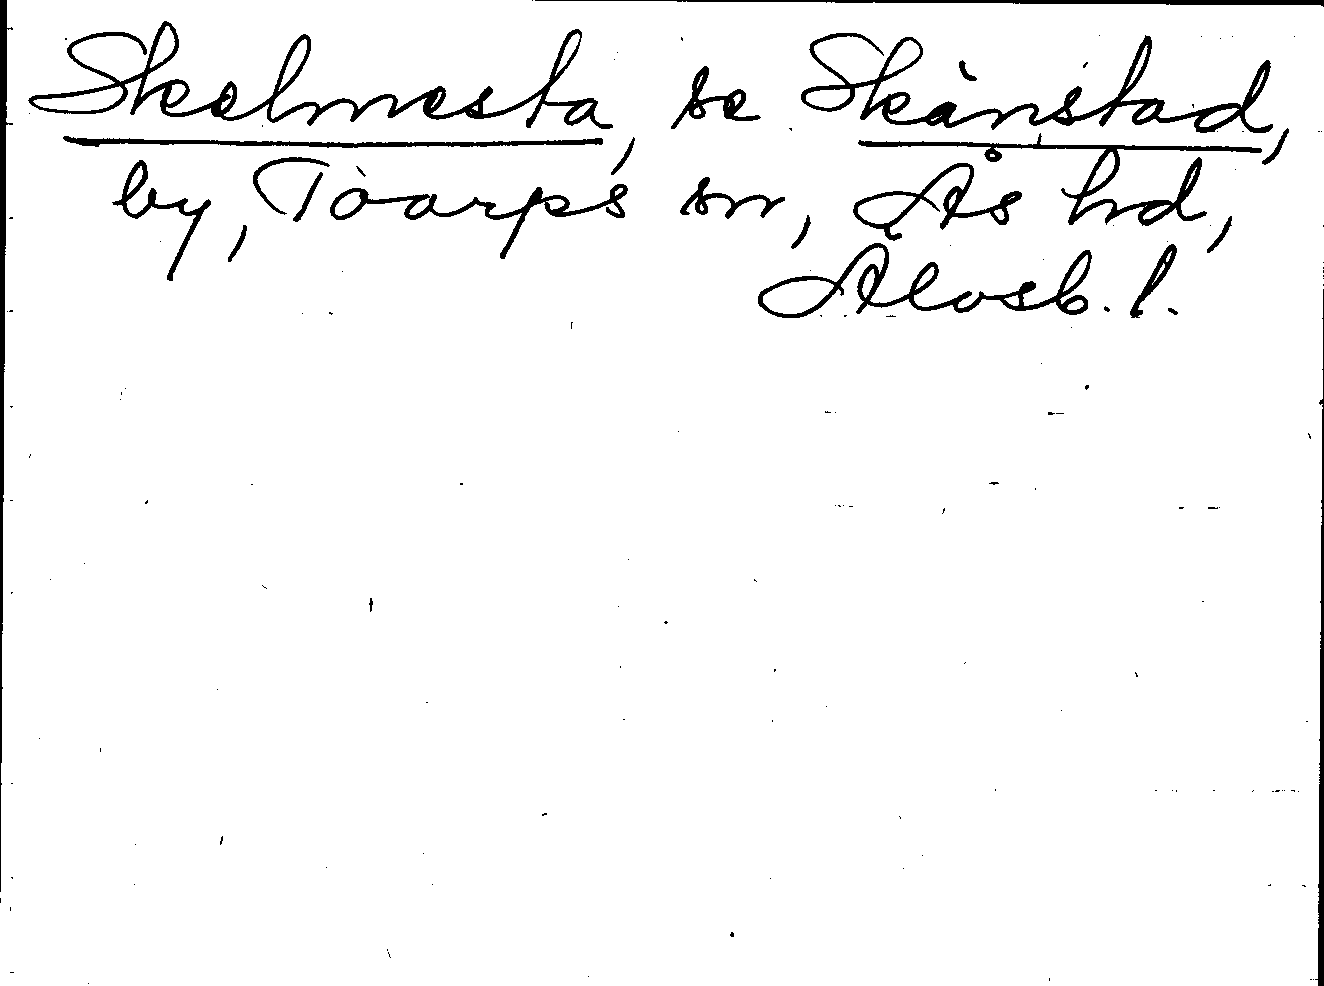 Skelmesta, se Skånstad,
by, Toarps sn, Ås hd,
Älvsb. l.